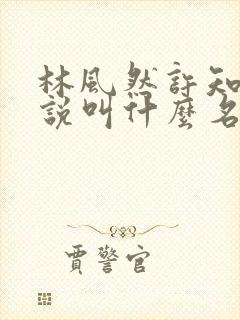 林風然許知
說叫什麼名
賈警官